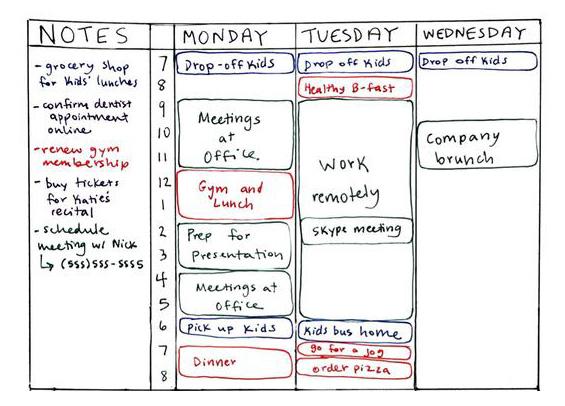 NOTES
MONDAY
TUESDAY
WEDNESDAY
- grocery shop
for kids' lunches
- confirm dentist
appointment
online
- renew gym
membership
- buy tickets
for Katie's
recital
- schedule
meeting w/ Nick
↳ (555)555-5555
7
8
9
10
11
12
1
2
3
4
5
6
7
8
Drop-off Kids
Meetings
at
Office.
Gym and
Lunch
Prep for
Presentation
Meetings at
Office
Pick up Kids
Dinner
Drop off Kids
Healthy B-fast
Work
remotely
Skype meeting
Kids bus home
go for a jog
order pizza
Drop off Kids
Company
brunch